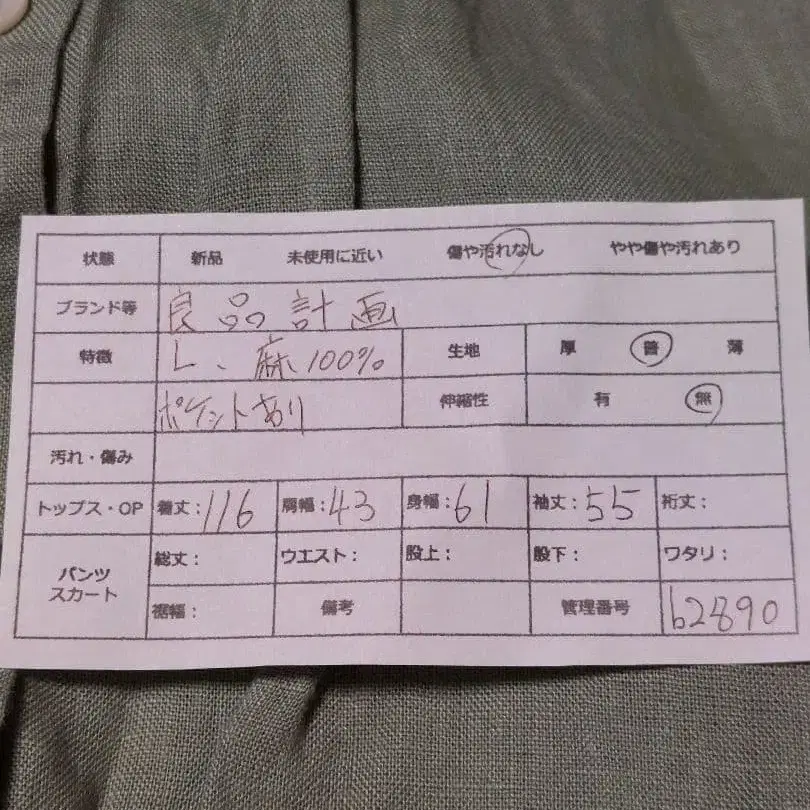 状態 新品 未使用に近い 傷や汚れなし やや傷や汚れあり
ブランド等 良品計画
特徴 L、麻100% 生地 厚 普 薄
ポケットあり 伸縮性 有 無
汚れ・傷み
トップス・OP 着丈:116 肩幅:43 身幅:61 袖丈:55 裄丈:
パンツ スカート 総丈: ウエスト: 股上: 股下: ワタリ:
裾幅: 備考 管理番号 b2890